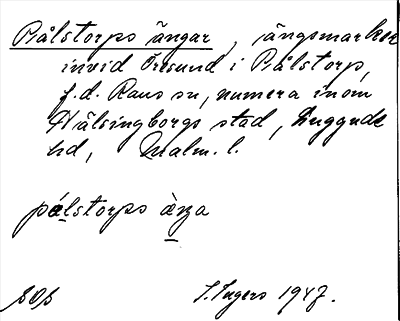 Pålstorps ängar, ängsmarker
invid Öresund i Pålstorp,
f.d. Raus sn, numera inom
Hälsingborgs stad, Luggude
hd, Malm. l.
pålstorps äŋa
I. Ingers 1947.